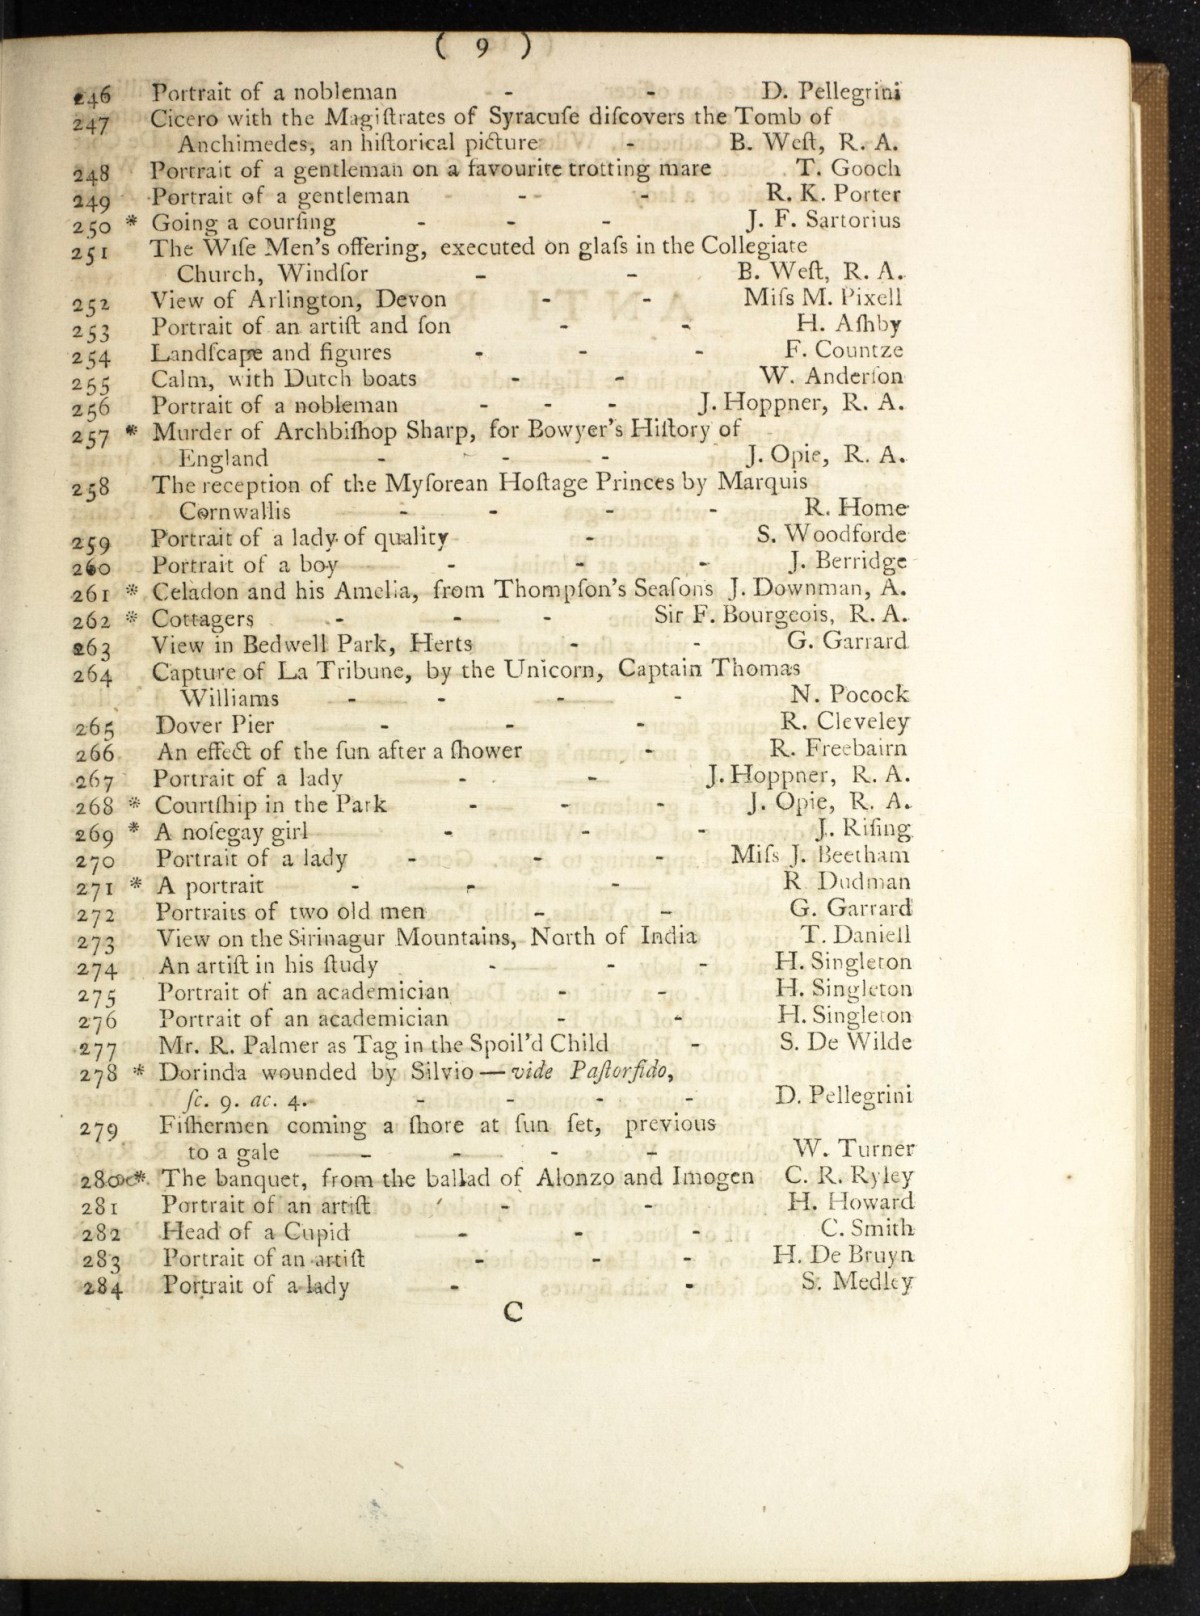 ( 9 )
246 Portrait of a nobleman - - D. Pellegrini
247 Cicero with the Magiſtrates of Syracuſe diſcovers the Tomb of
Anchimedes, an hiſtorical picture - B. Weſt, R. A.
248 Portrait of a gentleman on a favourite trotting mare T. Gooch
249 Portrait of a gentleman - - R. K. Porter
250 * Going a courſing - - - J. F. Sartorius
251 The Wiſe Men's offering, executed on glaſs in the Collegiate
Church, Windſor - - B. Weſt, R. A.
252 View of Arlington, Devon - - Miſs M. Pixell
253 Portrait of an artiſt and ſon - - H. Aſhby
254 Landſcape and figures - - - F. Countze
255 Calm, with Dutch boats - - W. Anderſon
256 Portrait of a nobleman - - - J. Hoppner, R. A.
257 * Murder of Archbiſhop Sharp, for Bowyer's Hiſtory of
England - - - J. Opie, R. A.
258 The reception of the Myſorean Hoſtage Princes by Marquis
Cornwallis - - - - R. Home
259 Portrait of a lady of quality - S. Woodforde
260 Portrait of a boy - - - J. Berridge
261 * Celadon and his Amelia, from Thompſon's Seaſons J. Downman, A.
262 * Cottagers - - - Sir F. Bourgeois, R. A.
263 View in Bedwell Park, Herts - - G. Garrard
264 Capture of La Tribune, by the Unicorn, Captain Thomas
Williams - - - - N. Pocock
265 Dover Pier - - - R. Cleveley
266 An effect of the ſun after a ſhower - R. Freebairn
267 Portrait of a lady - - J. Hoppner, R. A.
268 * Courtſhip in the Park - - - J. Opie, R. A.
269 * A noſegay girl - - - J. Riſing
270 Portrait of a lady - - - Miſs J. Beetham
271 * A portrait - - - R Dudman
272 Portraits of two old men - - G. Garrard
273 View on the Sirinagur Mountains, North of India T. Daniell
274 An artiſt in his ſtudy - - - H. Singleton
275 Portrait of an academician - - H. Singleton
276 Portrait of an academician - - H. Singleton
277 Mr. R. Palmer as Tag in the Spoil'd Child - S. De Wilde
278 * Dorinda wounded by Silvio — vide Paſtorfido,
ſc. 9. ac. 4. - - - - D. Pellegrini
279 Fiſhermen coming a ſhore at ſun ſet, previous
to a gale - - - - W. Turner
280 * The banquet, from the ballad of Alonzo and Imogen C. R. Ryley
281 Portrait of an artiſt - - H. Howard
282 Head of a Cupid - - - C. Smith
283 Portrait of an artiſt - - - H. De Bruyn
284 Portrait of a lady - - S. Medley
C